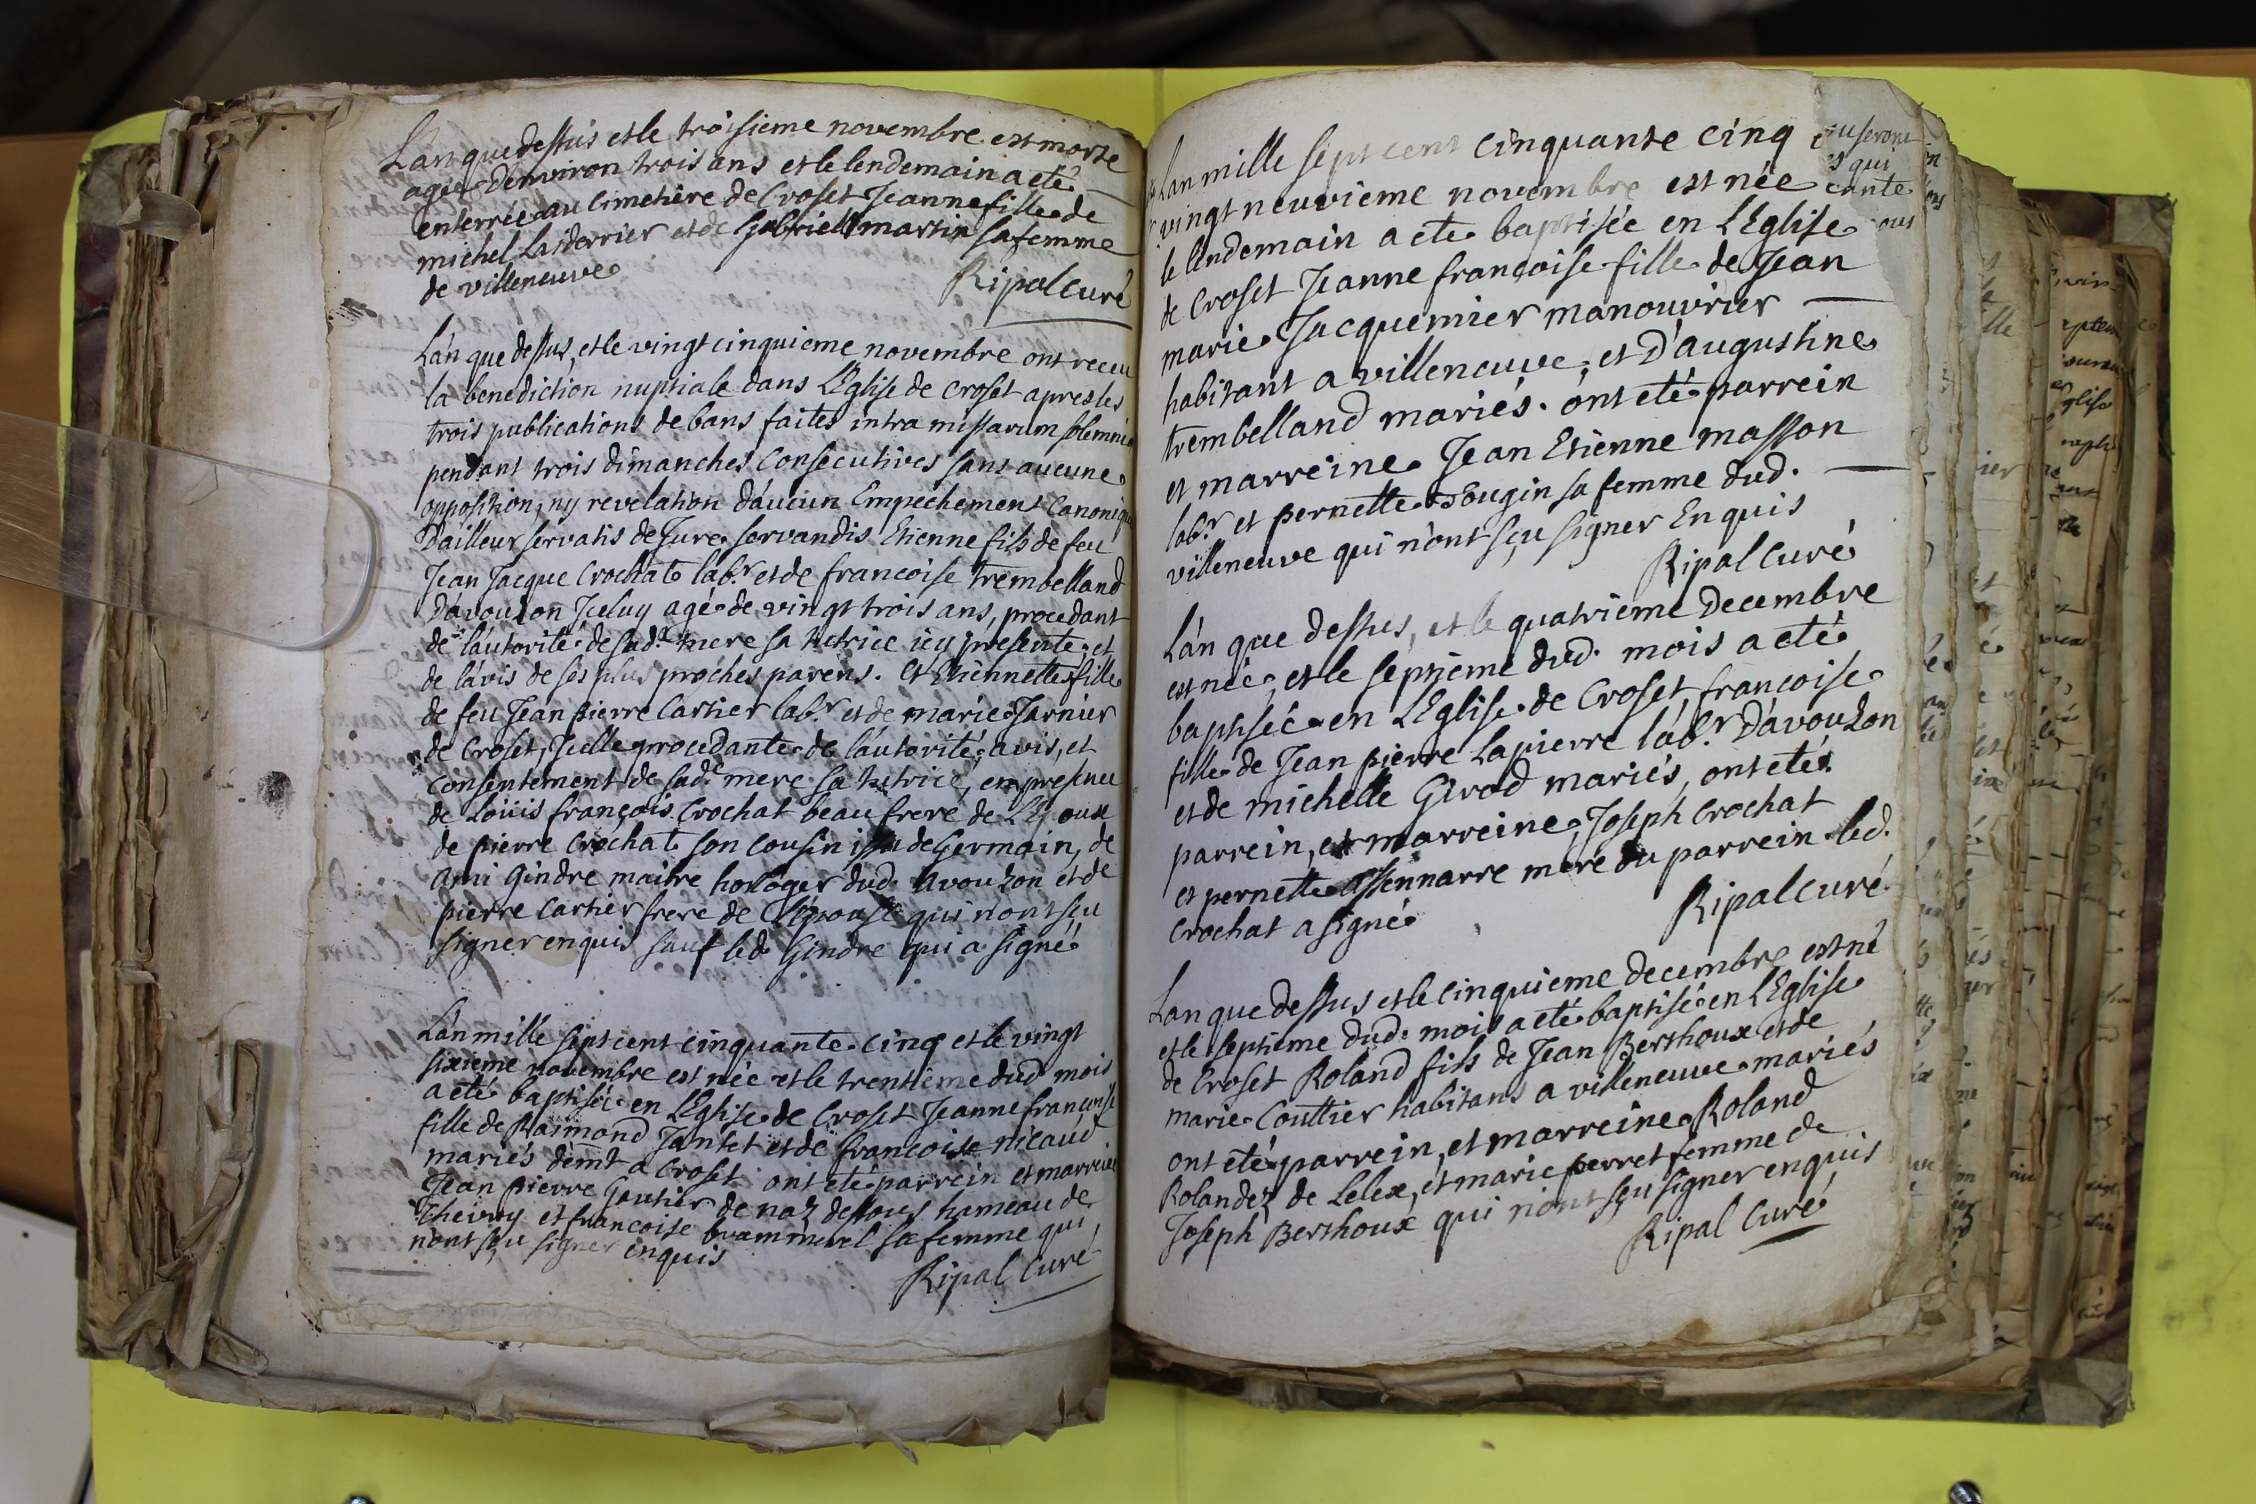 L'an que dessus et le troisieme novembre est morte
agée d'environ trois ans et le lendemain a eté
enterrée au cimetière de Croset Jeanne fille de
michel Lasderrier et de Gabrielle martin sa femme
de villeneuve
Ripal curé
L'an que dessus, et le vingt cinquieme novembre ont receu
la benediction nuptiale dans L'Eglise de Croset apres les
trois publications de bans faites intra missarum solemnia
pendant trois dimanches Consecutives sans aucune
opposition, ny revelation d'aucun Empechement Canonique
D'ailleur servatis de Jure servandis Etienne fils de feu
Jean Jacque Crochat labr. et de francoise trembelland
D'avouzon Iceluy agé de vingt trois ans, procedant
de l'autorité de sad.t mere sa tutrice icy presente et
de l'avis de ses plus proches parens. Et Etiennette fille
de feu Jean pierre Cartier labr. et de marie Jarnier
de Croset, Icelle procedante de l'autorité, avis, et
consentement de sad.e mere sa tutrice, en presence
de Loüis françois Crochat beau frere de L'Epoux
de pierre Crochat son cousin issu de Germain, de
ami Gindre maitre horloger dud. avouzon et de
pierre Cartier frere de L'épouse qui n'ont seu
signer enquis sauf led. Gindre qui a signé
L'an mille sept cent cinquante cinq et le vingt
sixieme novembre est née et le trentieme dud. mois
a eté baptisée en L'Eglise de Croset Jeanne francoise
fille de Raimond Jantet et de francoise nicaud
mariés demt a Croset ont eté parrein et marreine
Jean pierre Gautier de naz dessous hameau de
Chevry et francoise brammerel sa femme qui
n'ont sçu signer enquis
Ripal curé
L'an mille sept cent cinquante cinq
vingt neuvieme novembre est née
le lendemain a eté baptisée en L'Eglise
de Croset Jeanne francoise fille de Jean
marie Jacquemier manouvrier
habitant a villeneuve, et D'augustine
trembelland mariés. ont eté parrein
et marreine Jean Etienne masson
labr. et pernette Dougin sa femme dud.
villeneuve qui n'ont sçu signer Enquis
Ripal Curé
L'an que dessus, et le quatrieme Decembre
est née, et le septieme dud. mois a eté
baptisée en L'Eglise de Croset francoise
fille de Jean pierre Lapierre labr. D'avouzon
et de michelle Girod mariés, ont eté
parrein, et marreine, Joseph Crochat
et pernette assennarre mere du parrein led.
Crochat a signé
Ripal curé
L'an que dessus et le cinquieme decembre est né
et le septieme dud. mois a eté baptisé en L'Eglise
de Croset Roland fils de Jean Berthoux et de
marie Couttier habitans a villeneuve mariés
ont eté parrein, et marreine Roland
Rolandez de Lelex, et marie perret femme de
Joseph Berthoux qui n'ont sçu signer enquis
Ripal Curé